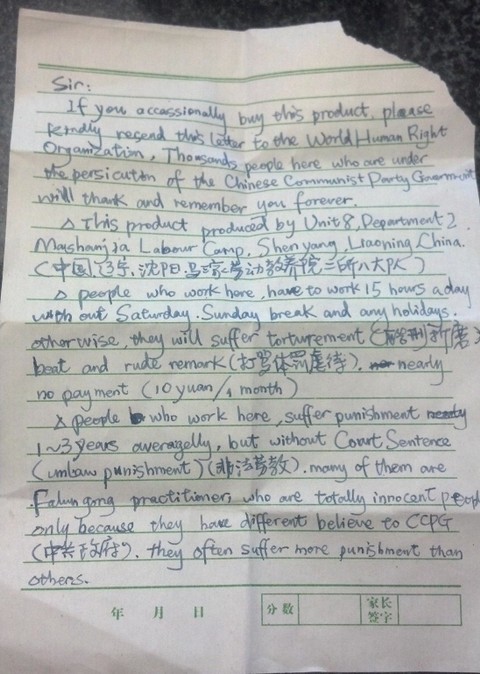 Sir:
If you occassionally buy this product, please
kindly resend this letter to the World Human Right
Organization. Thousands people here who are under
the persicution of the Chinese Communist Party Government
will thank and remember you forever.
△ This product produced by Unit 8, Department 2,
Mashanjia Labour Camp, Shen Yang, Liaoning, China.
(中国,辽宁,沈阳,马三家劳动教养院二所八大队)
△ people who work here, have to work 15 hours a day
with out Saturday, Sunday break and any holidays.
otherwise, they will suffer torturement ( 折磨),
beat and rude remark (打骂体罚虐待). nearly
no payment (10 yuan/1 month)
△ people who work here, suffer punishment
1~3 years averagelly, but without Court Sentence
(unlaw punishment) (非法劳教). many of them are
Falun gong practitioner, who are totally innocent people
only because they have different believe to CCPG
(中共政府). they often suffer more punishment than
others.
年 月 日 分数 家长签字